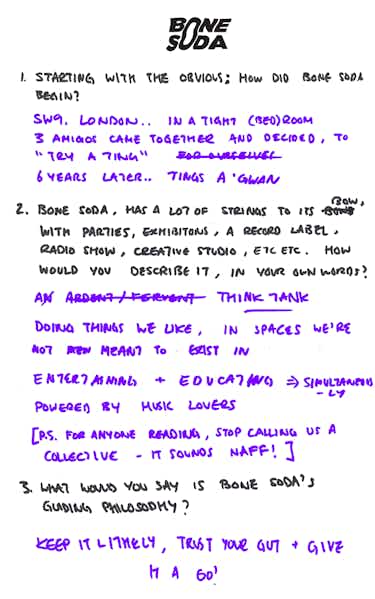 BONE
SODA
1. STARTING WITH THE OBVIOUS; HOW DID BONE SODA
BEGIN?
SW9, LONDON.. IN A TIGHT (BED)ROOM
3 AMIGOS CAME TOGETHER AND DECIDED, TO
"TRY A TING" FOR OURSELVES
6 YEARS LATER.. TINGS A'GWAN
2. BONE SODA, HAS A LOT OF STRINGS TO ITS BOW,
WITH PARTIES, EXHIBITONS, A RECORD LABEL,
RADIO SHOW, CREATIVE STUDIO, ETC ETC. HOW
WOULD YOU DESCRIBE IT, IN YOUR OWN WORDS?
AN ARDENT/FERVENT THINK TANK
DOING THINGS WE LIKE, IN SPACES WE'RE
NOT MEANT TO EXIST IN
ENTERTAINING + EDUCATING => SIMULTANEOUS
-LY
POWERED BY MUSIC LOVERS
[P.S. FOR ANYONE READING, STOP CALLING US A
COLLECTIVE - IT SOUNDS NAFF!]
3. WHAT WOULD YOU SAY IS BONE SODA'S
GUIDING PHILOSOPHY?
KEEP IT LITHELY, TRUST YOUR GUT + GIVE
IT A GO!